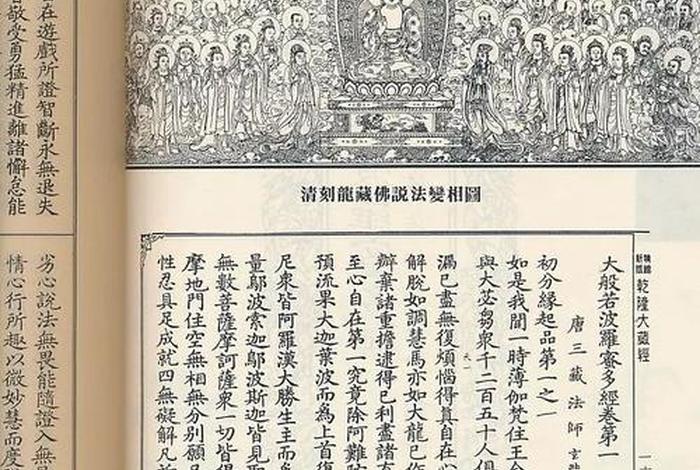 清刻龍藏佛説法變相圖
乾隆大藏經
大般若波羅蜜多經卷第一
唐三藏法師玄
初分緣起品第一之一
如是我聞一時薄伽梵住王
與大苾芻衆千二百五十人俱
漏已盡無復煩惱得真自在心
解脫如調慧馬亦如大龍已作
辦棄諸重擔逮得已利盡諸有
至心自在第一究竟除阿難陀
預流果大迦葉波而爲上首復
尼衆皆阿羅漢大勝生主而爲
量鄔波索迦鄔波斯迦皆見聖
無數菩薩摩訶薩衆一切皆得
摩地門住空無相無分別願
性忍具足成就四無礙解凡
天一
在遊戲所證智斷永無退失
敬受勇猛精進離諸懈怠能
劣心説法無畏能隨證入無
情心行所趣以微妙慧而度